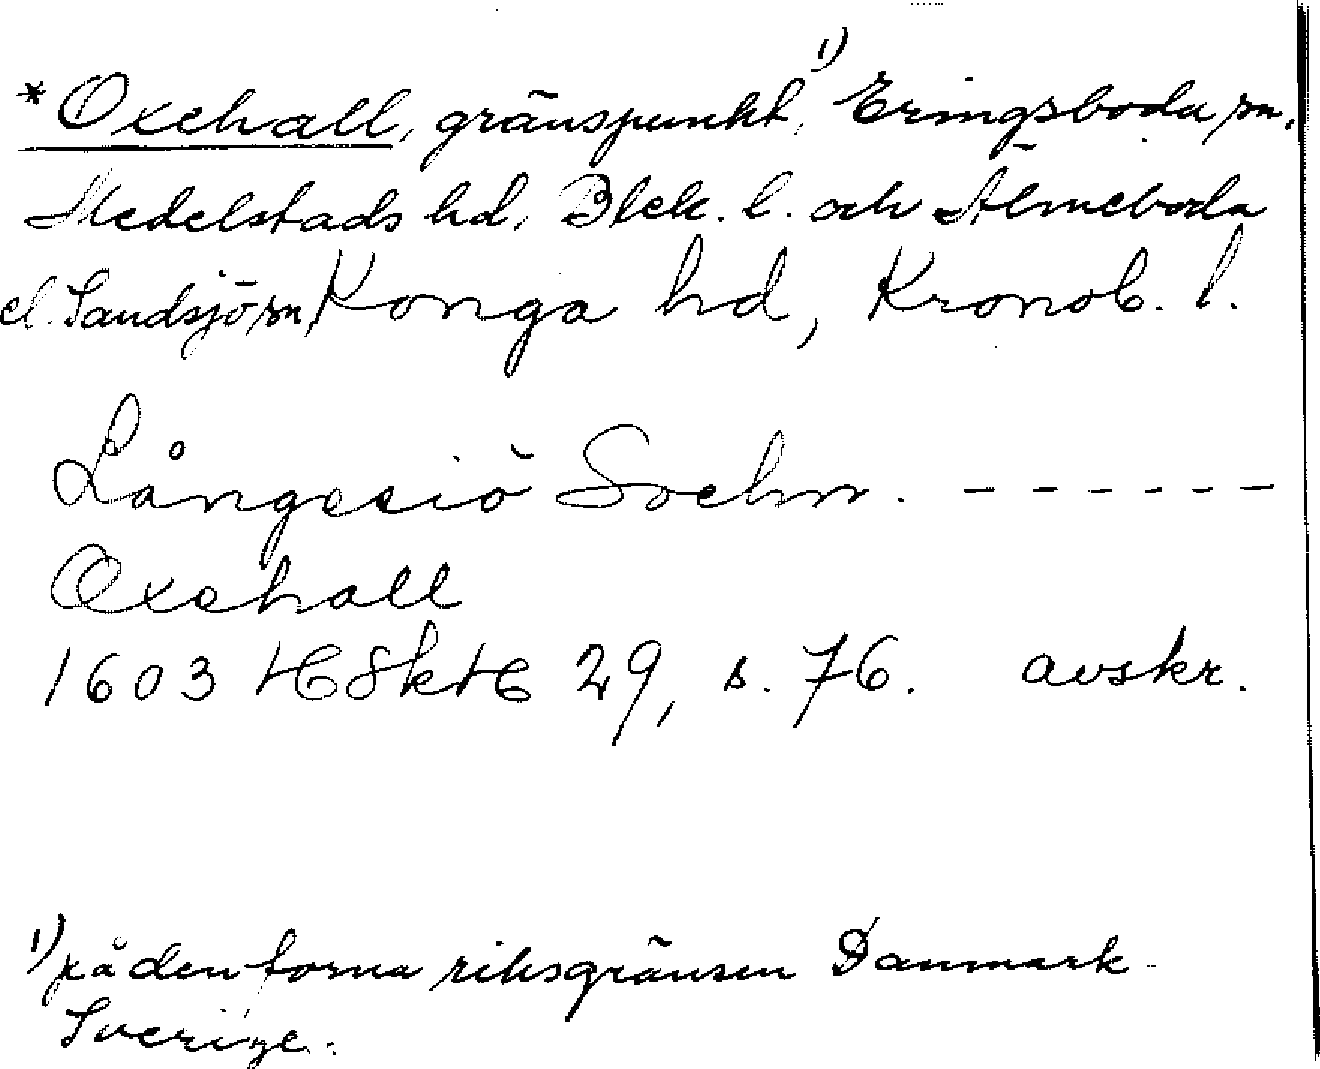 *Oxehall, gränspunkt,¹⁾ Eringsboda sn,
Medelstads hd, Blek. l. och Älmeboda
el. Sandsjö sn, Konga hd, Kronob. l.
Långesiö Sochn. - - - - - -
Oxehall
1603 HSkH 29, s. 76. avskr.
¹⁾ på den forna riksgränsen Danmark-
Sverige.